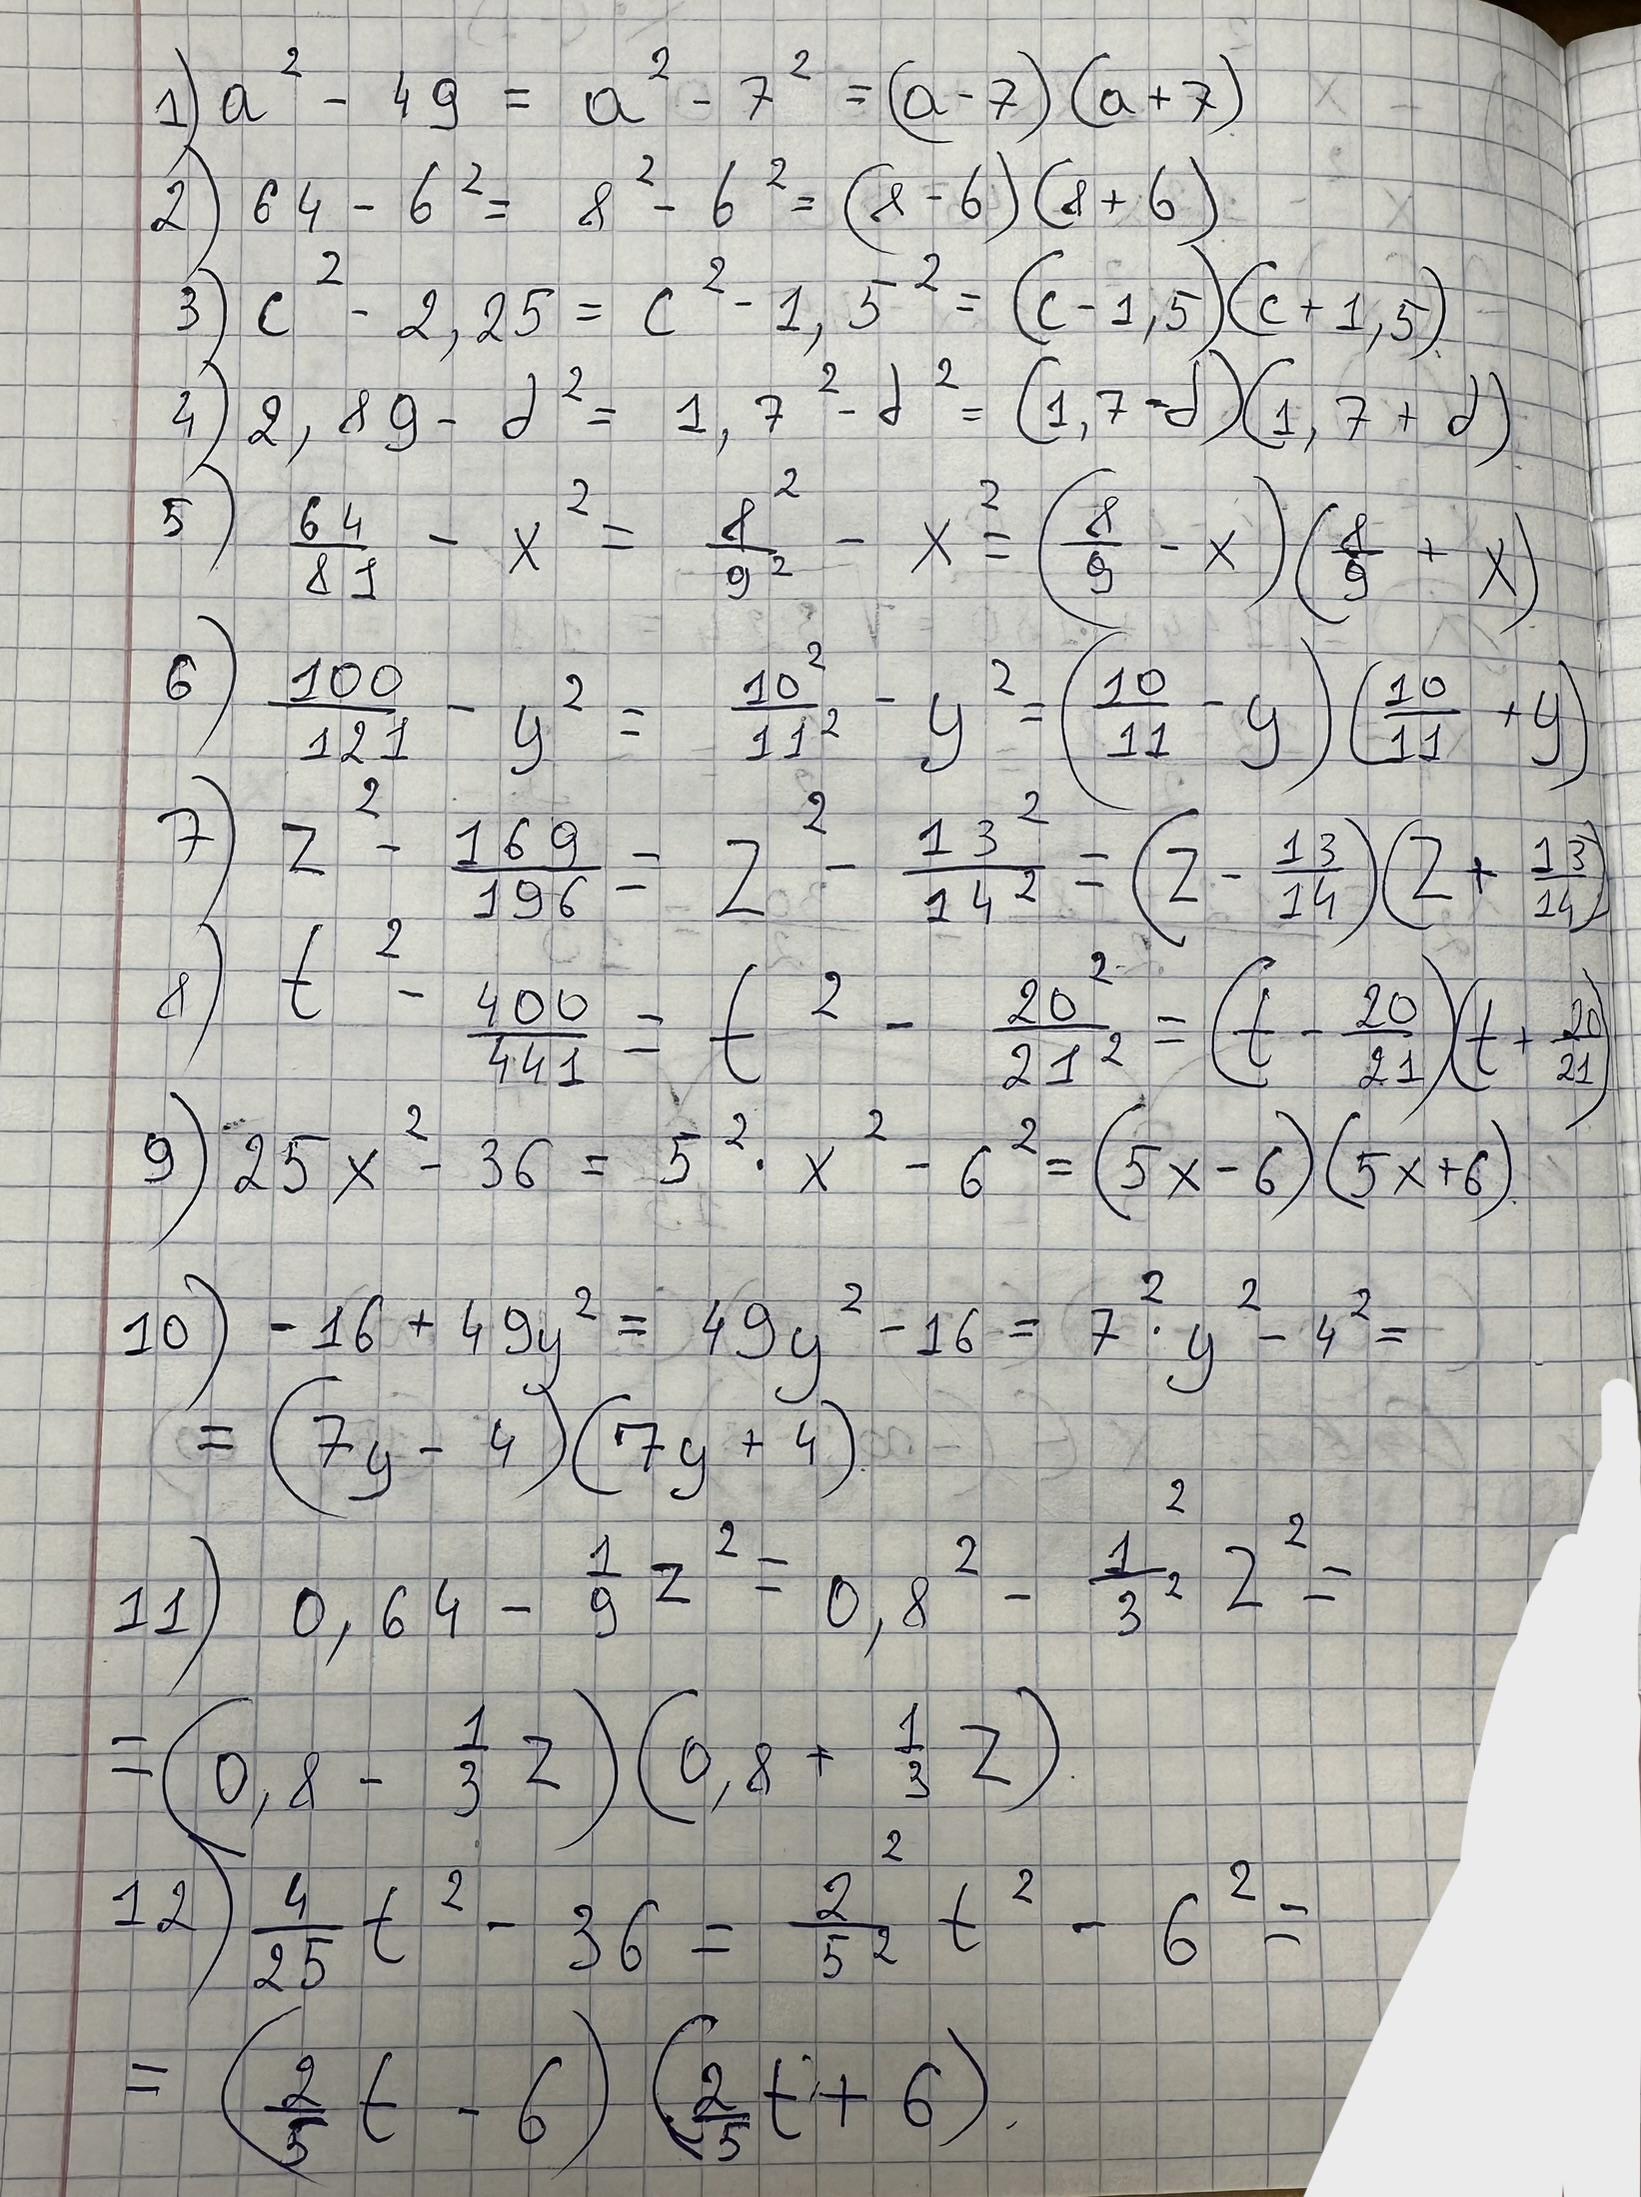 1) a² - 49 = a² - 7² = (a - 7)(a + 7)
2) 64 - б² = 8² - б² = (8 - б)(8 + б)
3) c² - 2,25 = c² - 1,5² = (c - 1,5)(c + 1,5).
4) 2,89 - d² = 1,7² - d² = (1,7 - d)(1,7 + d)
5) 64/81 - x² = 8²/9² - x² = (8/9 - x)(8/9 + x)
6) 100/121 - y² = 10²/11² - y² = (10/11 - y)(10/11 + y)
7) z² - 169/196 = z² - 13²/14² = (z - 13/14)(z + 13/14)
8) t² - 400/441 = t² - 20²/21² = (t - 20/21)(t + 20/21)
9) 25x² - 36 = 5² · x² - 6² = (5x - 6)(5x + 6).
10) - 16 + 49y² = 49y² - 16 = 7² · y² - 4² =
= (7y - 4)(7y + 4).
11) 0,64 - 1/9 z² = 0,8² - 1²/3² z² =
= (0,8 - 1/3 z)(0,8 + 1/3 z).
12) 4/25 t² - 36 = 2²/5² t² - 6² =
= (2/5 t - 6)(2/5 t + 6).